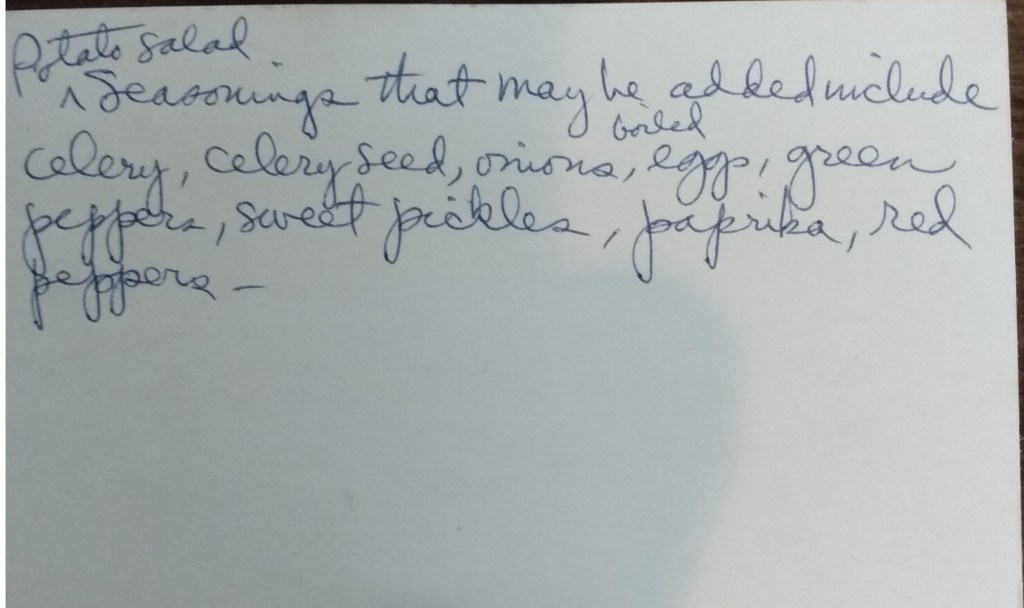 Potato Salad
^ Seasonings that may be added include
boiled
celery, celery seed, onions, eggs, green
peppers, sweet pickles, paprika, red
peppers –